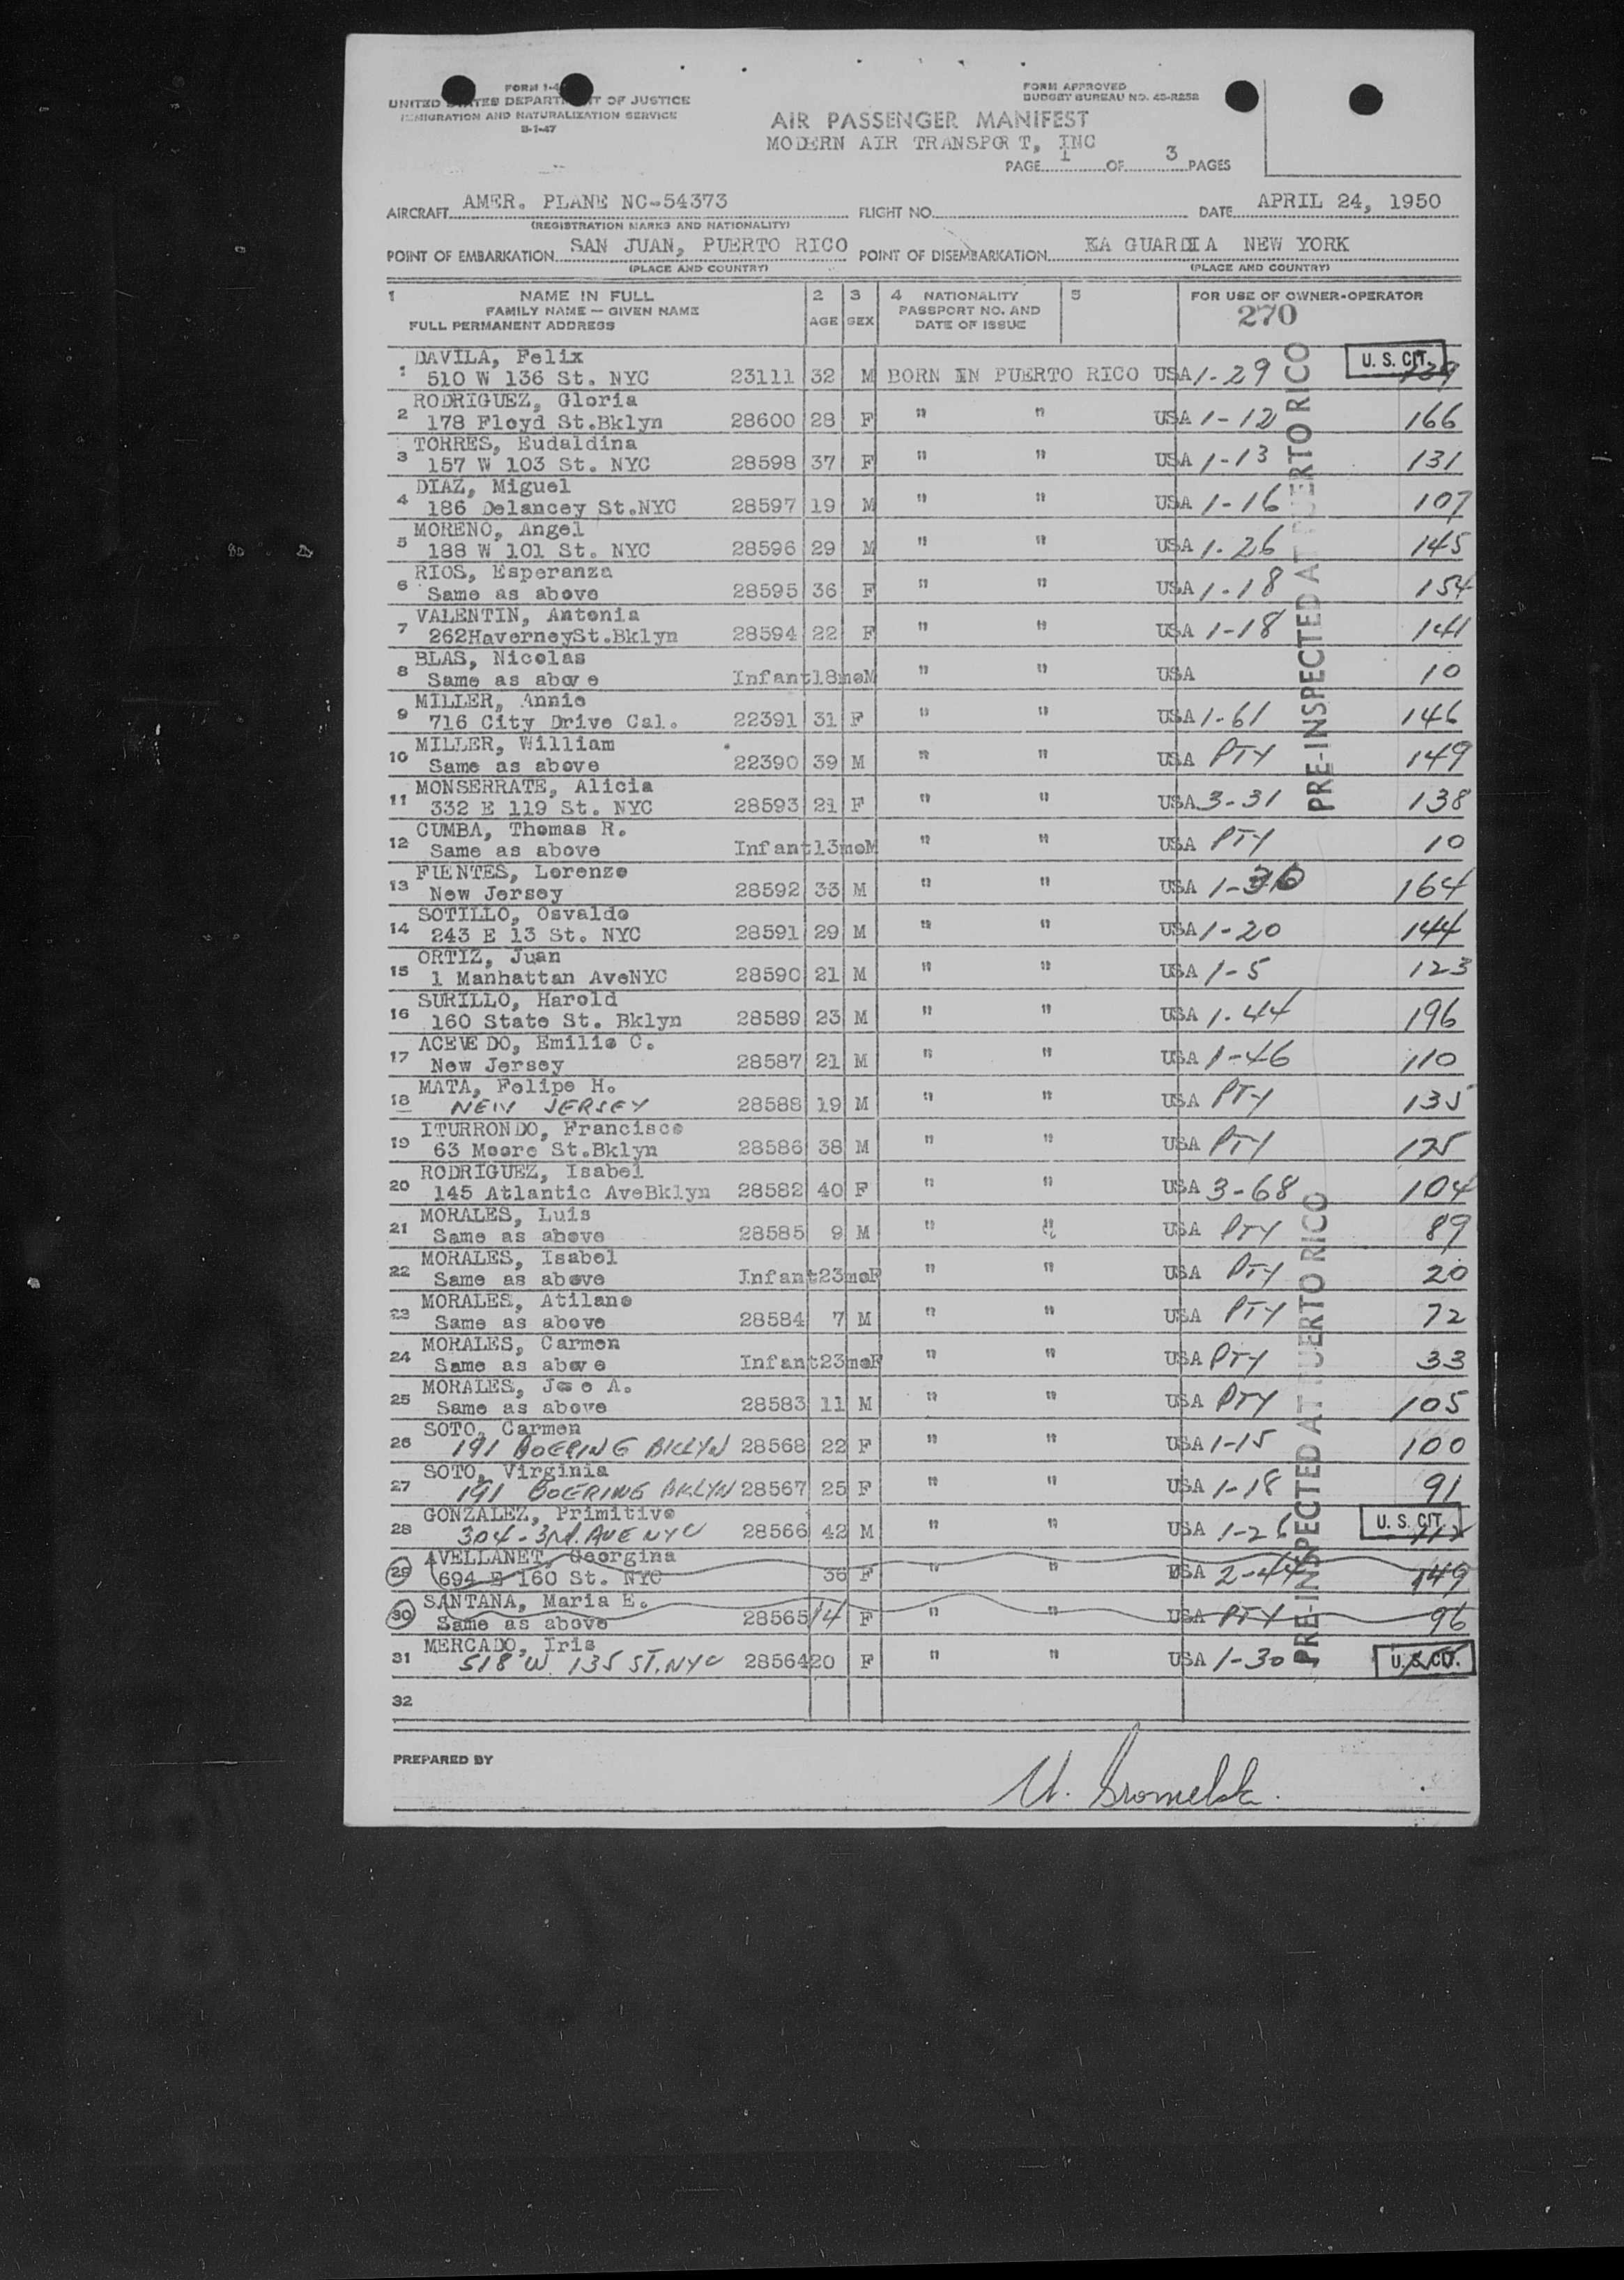 FORM I-4
UNITED STATES DEPARTMENT OF JUSTICE
IMMIGRATION AND NATURALIZATION SERVICE
FORM APPROVED
BUDGET BUREAU NO. 43-R252
AIR PASSENGER MANIFEST
MODERN AIR TRANSPORT, INC
PAGE 1 OF 3 PAGES
AIRCRAFT AMER. PLANE NC-54373 FLIGHT NO. DATE APRIL 24, 1950
(REGISTRATION MARKS AND NATIONALITY)
POINT OF EMBARKATION SAN JUAN, PUERTO RICO POINT OF DISEMBARKATION KA GUARDIA NEW YORK
(PLACE AND COUNTRY) (PLACE AND COUNTRY)
1 NAME IN FULL 2 3 4 NATIONALITY 5 FOR USE OF OWNER-OPERATOR
FAMILY NAME — GIVEN NAME PASSPORT NO. AND 270
FULL PERMANENT ADDRESS AGE SEX DATE OF ISSUE
DAVILA, Felix U. S. CIT.
1 510 W 136 St. NYC 23111 32 M BORN IN PUERTO RICO USA 1-29 139
RODRIGUEZ, Gloria
2 178 Floyd St.Bklyn 28600 28 F " " USA 1-12 166
TORRES, Eudaldina
3 157 W 103 St. NYC 28598 37 F " " USA 1-13 131
DIAZ, Miguel
4 186 Delancey St.NYC 28597 19 M " " USA 1-16 107
MORENO, Angel
5 188 W 101 St. NYC 28596 29 M " " USA 1.26 145
RIOS, Esperanza
6 Same as above 28595 36 F " " USA 1-18 154
VALENTIN, Antonia
7 262HaverneySt.Bklyn 28594 22 F " " USA 1-18 141
BLAS, Nicolas
8 Same as above Infant18moM " " USA 10
MILLER, Annie
9 716 City Drive Cal. 22391 31 F " " USA 1-61 146
MILLER, William
10 Same as above 22390 39 M " " USA PTY 149
MONSERRATE, Alicia
11 332 E 119 St. NYC 28593 21 F " " USA 3-31 138
CUMBA, Thomas R.
12 Same as above Infant13moM " " USA PTY 10
FUENTES, Lorenzo
13 New Jersey 28592 33 M " " USA 1-30 164
SOTILLO, Osvaldo
14 243 E 13 St. NYC 28591 29 M " " USA 1-20 144
ORTIZ, Juan
15 1 Manhattan AveNYC 28590 21 M " " USA 1-5 123
SURILLO, Harold
16 160 State St. Bklyn 28589 23 M " " USA 1.44 196
ACEVEDO, Emilio C.
17 New Jersey 28587 21 M " " USA 1-46 110
MATA, Felipe H.
18 NEW JERSEY 28588 19 M " " USA PTY 135
ITURRONDO, Francisco
19 63 Moore St.Bklyn 28586 38 M " " USA PTY 125
RODRIGUEZ, Isabel
20 145 Atlantic AveBklyn 28582 40 F " " USA 3-68 104
MORALES, Luis
21 Same as above 28585 9 M " " USA PTY 89
MORALES, Isabel
22 Same as above Infant23moF " " USA PTY 20
MORALES, Atilano
23 Same as above 28584 7 M " " USA PTY 72
MORALES, Carmen
24 Same as above Infant23moF " " USA PTY 33
MORALES, Jose A.
25 Same as above 28583 11 M " " USA PTY 105
SOTO, Carmen
26 191 BOERING BKLYN 28568 22 F " " USA 1-15 100
SOTO, Virginia
27 191 BOERING BKLYN 28567 25 F " " USA 1-18 91
GONZALEZ, Primitivo U. S. CIT.
28 304-3rd. AVE NYC 28566 42 M " " USA 1-26
AVELLANET, Georgina
29 694 E 160 St. NYC 36 F " " USA 2-44 149
SANTANA, Maria E.
30 Same as above 28565 14 F " " USA PTY 96
MERCADO, Iris
31 518 W 135 ST. NYC 28564 20 F " " USA 1-30 U. S. CIT.
32
PRE-INSPECTED AT PUERTO RICO
PRE-INSPECTED AT PUERTO RICO
PREPARED BY